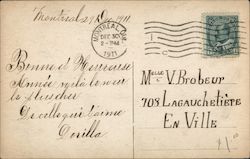 Montreal 29 Dec 1911
MONTREAL, CAN.
DEC 30
2 - PM
1911
Bonne et Heureuse
Année voilà le vœu
le plus cher
De celle qui t'aime
Dorilla
Melle V. Brobeur
708 Lagauchetière
En Ville